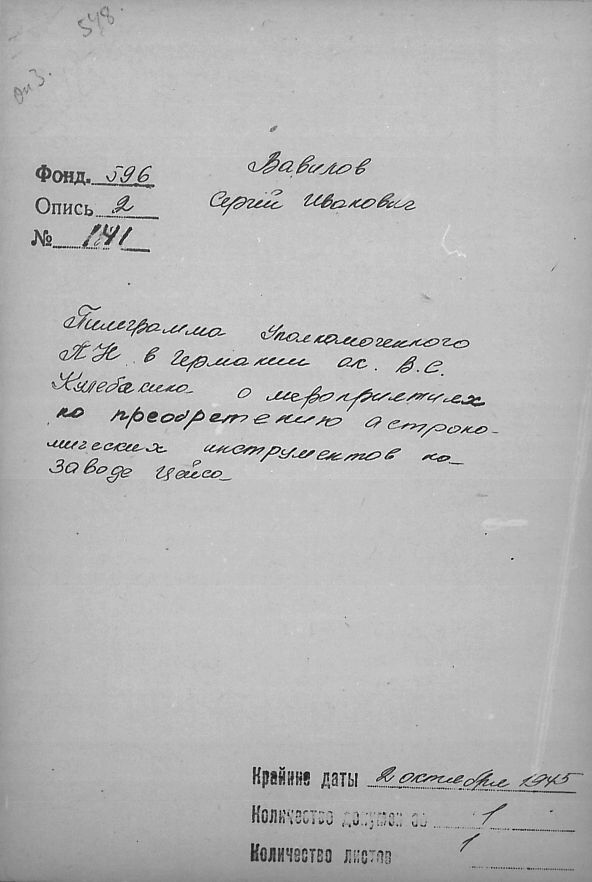 548.
оп 3.
Вавилов
Фонд. 596
Сергей Иванович
Опись 2
№ 141
Телеграмма Уполномоченного
АН в Германии ак. В.С.
Кулебакина о мероприятиях
по преобретению астроно-
мических инструментов на
заводе Цейса
Крайние даты 2 октября 1945
Количество документов 1
Количество листов 1